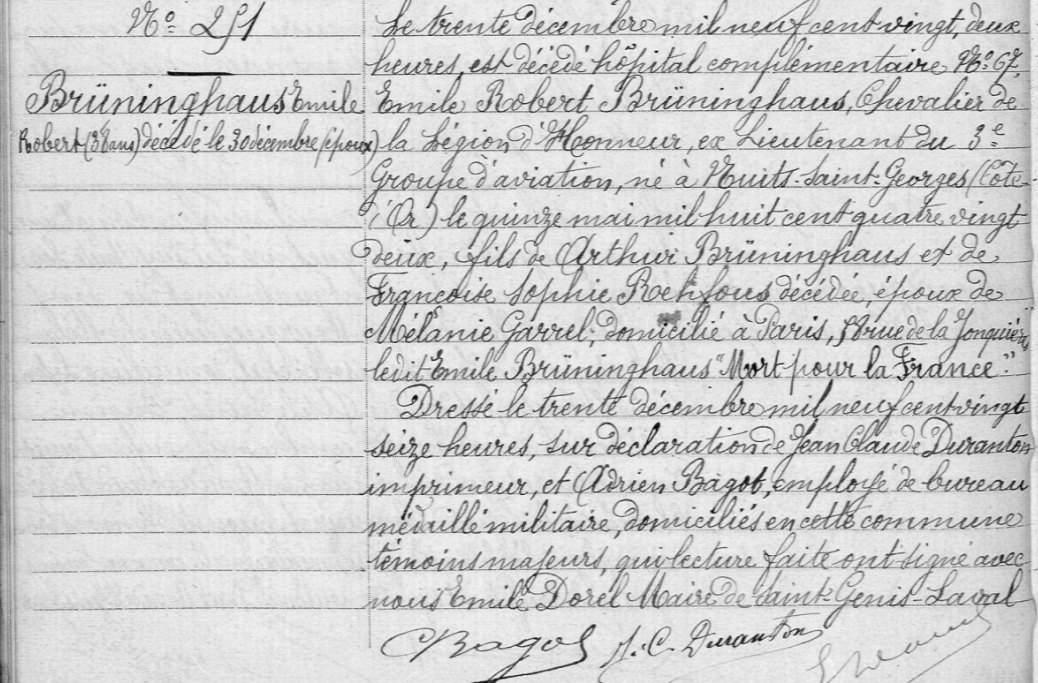 N° 251
Brüninghaus Emile
Robert (38 ans) décédé le 30 décembre (époux)
Le trente décembre mil neuf cent vingt, deux
heures est décédé hôpital complémentaire N° 67,
Emile Robert Brüninghaus, Chevalier de
la Légion d'Honneur, ex Lieutenant du 3e
Groupe d'aviation, né à Nuits-Saint-Georges (Côte
d'Or) le quinze mai mil huit cent quatre vingt
deux, fils de Arthur Brüninghaus et de
Françoise Sophie Rehfous décédée, époux de
Mélanie Garrel; domicilié à Paris, rue de la Jonquière,
le dit Emile Brüninghaus "Mort pour la France".
Dressé le trente décembre mil neuf cent vingt
seize heures, sur déclaration de Jean Claude Duranton
imprimeur, et Adrien Bagot, employé de bureau
médaillé militaire, domiciliés en cette commune
témoins majeurs, qui lecture faite ont signé avec
nous Emile Dorel Maire de Saint-Genis-Laval
Bagot J. C. Duranton